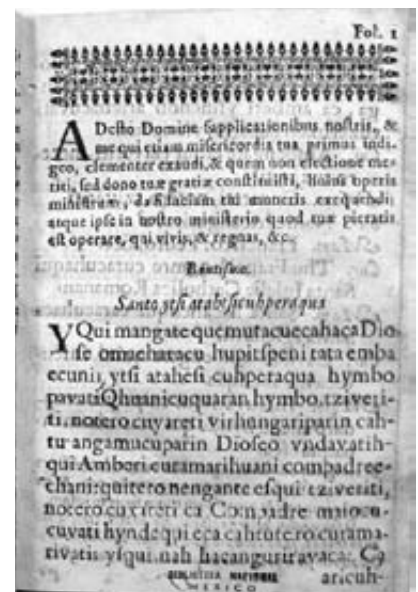 Fol. 1
ADesto Domine supplicationibus nostris, &
me qui etiam misericordia tua primus indi-
geo, clementer exaudi, & quem non electione me-
riti, sed dono tuæ gratiæ constituisti, huius operis
ministrum, da fiduciam tui muneris exequendi,
atque ipse in nostro ministerio quod tuæ pietatis
est operare, qui vivis, & regnas, &c.
Bautismo.
Santo ytsi atahesicuhperaqua
YQui mangate quemutacuecahaca Dio
se omucharacu hupitspeni tata emba
ecunis ytsi atahesi cuhperaqua hymbo
pavati Qhuanicuquaran hymbo. tziveti-
ti, notero cuyareti virhungariparin cah-
tu angamucuparin Dioseo vndavatih-
qui Amberi curamarihuani compadree-
chani: quitero nengante esqui tziveriti,
notero cuxireti ca Compadre maiocu-
cuvati hyndequi eca cahtutero curama-
rivatis ysqui nah hacanguriravaca: Ca
BIBLIOTECA NACIONAL
MEXICO
aricuh-